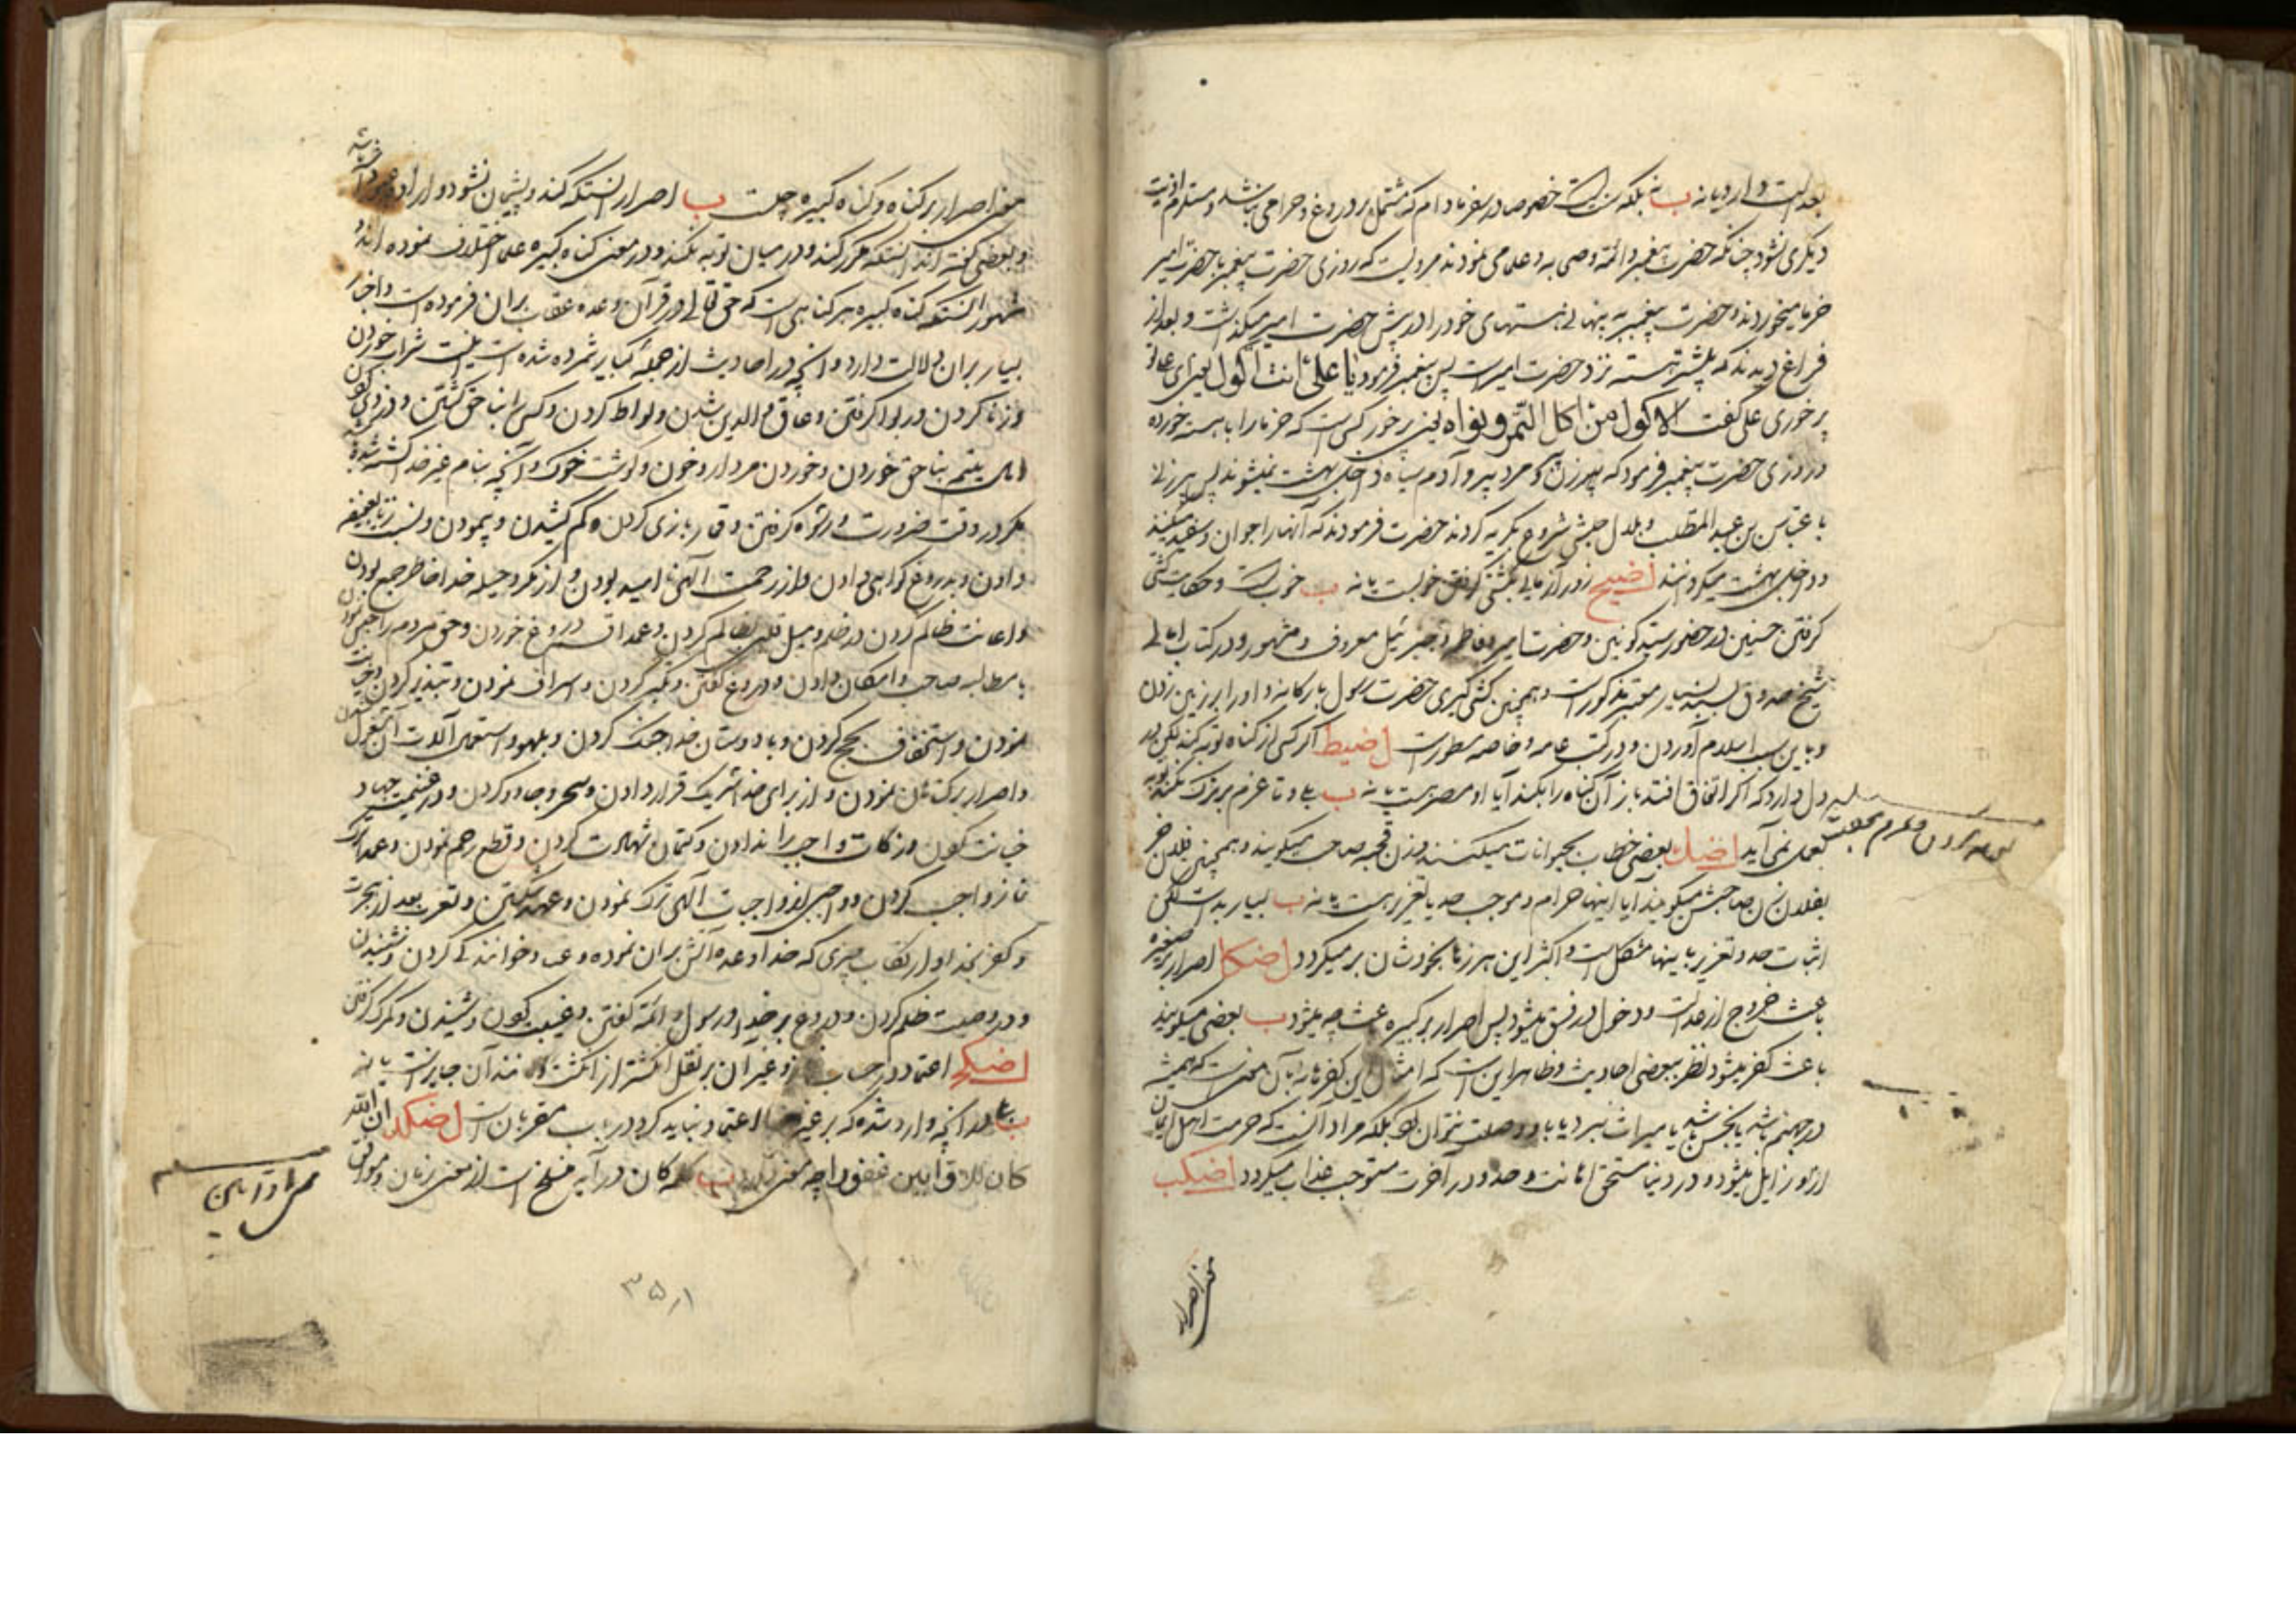 بعدالت دارد یا نه ب نه بلکه سنت است خصوصا در سفر مادام که مشتمل بر دروغ و حرامی نباشد و مستلزم اذیت
دیگری نشود چنانکه حضرت پیغمبر و ائمه و صحابه و علما می نمودند مرویست که روزی حضرت پیغمبر با حضرت امیر
خرما میخوردند و حضرت پیغمبر به پنهانی هستهای خود را در پیش حضرت امیر میگذاشت و بعد از
فراغ دیدند که بیشتر هسته نزد حضرت امیر است پس پیغمبر فرمود یا علی انت اکول یعنی ای علی تو
پرخوری علی گفت الاکول من اکل التمر و نواه یعنی پرخور کسی است که خرما را با هسته خورده
و روزی حضرت پیغمبر فرمود که پیرزن و مرد پیر و آدم سیاه داخل بهشت نمیشوند پس پیرزنی
با عباس بن عبد المطلب و بلال حبشی شروع بگریه کردند حضرت فرمودند که آنها را جوان و سفید میکنند
و داخل بهشت میگردانند اضیح زورآزمایی بکشتی گرفتن خوبست یا نه ب خوبست و حکایت کشتی
گرفتن حسنین در حضور سید کونین و حضرت امیر و فاطمه و جبرئیل معروف و مشهور و در کتاب امالی
شیخ صدوق بسند بسیار معتبر مذکور است و همچنین کشتی گیری حضرت رسول با رکانه و او را بر زمین زدن
و باین سبب اسلام آوردن و در کتب عامه و خاصه مسطور است اضیط اگر کسی از گناه توبه کند لیکن در
دل دارد که اگر اتفاق افتد باز آن گناه را بکند آیا او مصر هست یا نه ب بلی و تا عزم بر ترک نکند توبه
بعمل نمی آید اضک بعضی خطاب بحیوانات میکنند و زن قحبه صاحب میگویند و همچنین فلان خر
بفلان زن صاحبش میگویند آیا اینها حرام و موجب حد یا تعزیر هست یا نه ب بسیار بد است لکن
اثبات حد و تعزیر باینها مشکل است و اکثر این هرزه ها بخودشان بر میگردد اضکا اصرار بر صغیره
باعث خروج از عدالت و دخول در فسق میشود پس اصرار بر کبیره باعث چه میشود ب بعضی میگویند
باعث کفر میشود نظر ببعضی احادیث و ظاهر این است که امثال این کفرها نه بآن معنی است که همیشه
در جهنم باشد یا نجس باشد یا میراث نبرد یا با او وصلت نتوان کرد بلکه مراد آنست که حرمت اهل ایمان
از او زایل میشود و در دنیا مستحق اهانت و حد و در آخرت مستوجب عذاب میگردد اضکب
معنی اصرار
معنی اصرار بر گناه و گناه کبیره چیست ب اصرار آنستکه کند و پشیمان نشود و اراده عود داشته
و بعضی گفته اند آنستکه مکرر کند و در میان توبه نکند و در معنی گناه کبیره علما اختلاف نموده اند و
مشهور آنستکه گناه کبیره هر گناهی است که حق تعالی در قرآن وعده عقاب بر آن فرموده است و اخبار
بسیار بر آن دلالت دارد و آنچه در احادیث از جمله کبایر شمرده شده است اینست شراب خوردن
و زنا کردن و ربوا گرفتن و عاق والدین شدن و لواط کردن و کسی را بناحق کشتن و دزدی کردن
و مال یتیم بناحق خوردن و خوردن مردار و خون و گوشت خوک و آنچه بنام غیر خدا کشته شده
مگر در وقت ضرورت و رشوه گرفتن و قمار بازی کردن و کم کشیدن و پیمودن و نسبت زنا بعفیفه
دادن و بدروغ گواهی دادن و از رحمت الهی ناامید بودن و از مکر و حیله خدا خاطر جمع بودن
و اعانت ظالم کردن در ظلم و میل قلبی بظالم کردن و عمدا قسم دروغ خوردن و حق مردم را حبس نمودن
با مطالبه صاحب و امکان دادن و دروغ گفتن و تکبر کردن و اسراف نمودن و تبذیر کردن و خیانت
نمودن و استخفاف بحج کردن و با دوستان خدا جنگ کردن و بلهو و استعمال آلات آن مشغول شدن
و اصرار بر گناهان نمودن و از برای خدا شریک قرار دادن و سحر و جادو کردن و در غنیمت جهاد
خیانت کردن و زکات واجب را ندادن و کتمان شهادت کردن و قطع رحم نمودن و عمدا ترک
نماز واجب کردن و واجبی از واجبات الهی ترک نمودن و عهد شکستن و تعرب بعد از هجرت
و کفر بخدا و ارتکاب چیزی که خدا وعده آتش بر آن نموده و خوانندگی کردن و شنیدن
و در وصیت ظلم کردن و دروغ بر خدا و رسول و ائمه گفتن و غیبت کردن و شنیدن و گمرک گرفتن
اضکج اعتماد در حساب نماز و غیر آن بر نقل انگشتر از انگشت و مانند آن جایز است یا نه
ب بلی و آنچه وارد شده که بر غیر خدا اعتماد نباید کرد در باب مقربان است اضکد ان الله
کان للاوابین غفورا چه معنی دارد ب کلمه کان در آیه منسلخ است از معنی زمان و موافق
۳۵۱